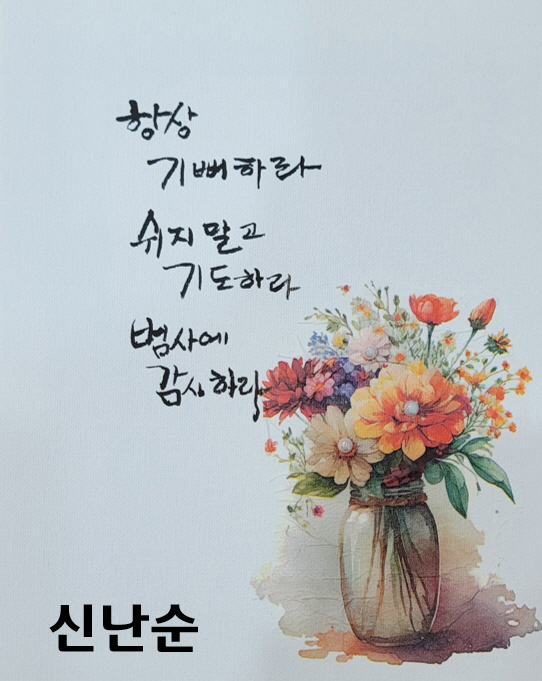 항상
기뻐하라
쉬지 말고
기도하라
범사에
감사하라
신난순